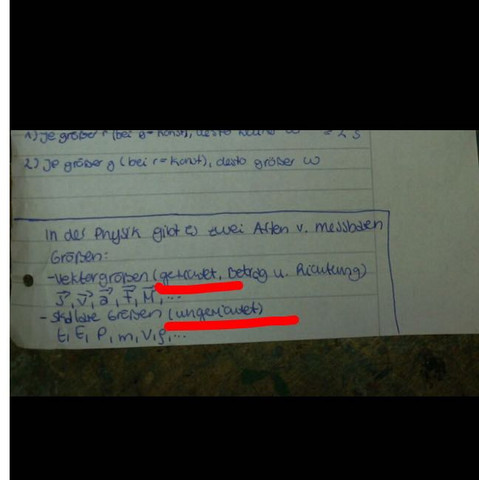 1) Je größer r (bei g = konst), desto kleiner ω
2) Je größer g (bei r = konst), desto größer ω
In der Physik gibt es zwei Arten v. messbaren
Größen:
- Vektorgrößen (gerichtet, Betrag u. Richtung)
s⃗, v⃗, a⃗, F⃗, M⃗, ...
- Skalare Größen (ungerichtet)
t, E, P, m, V, ρ, ...